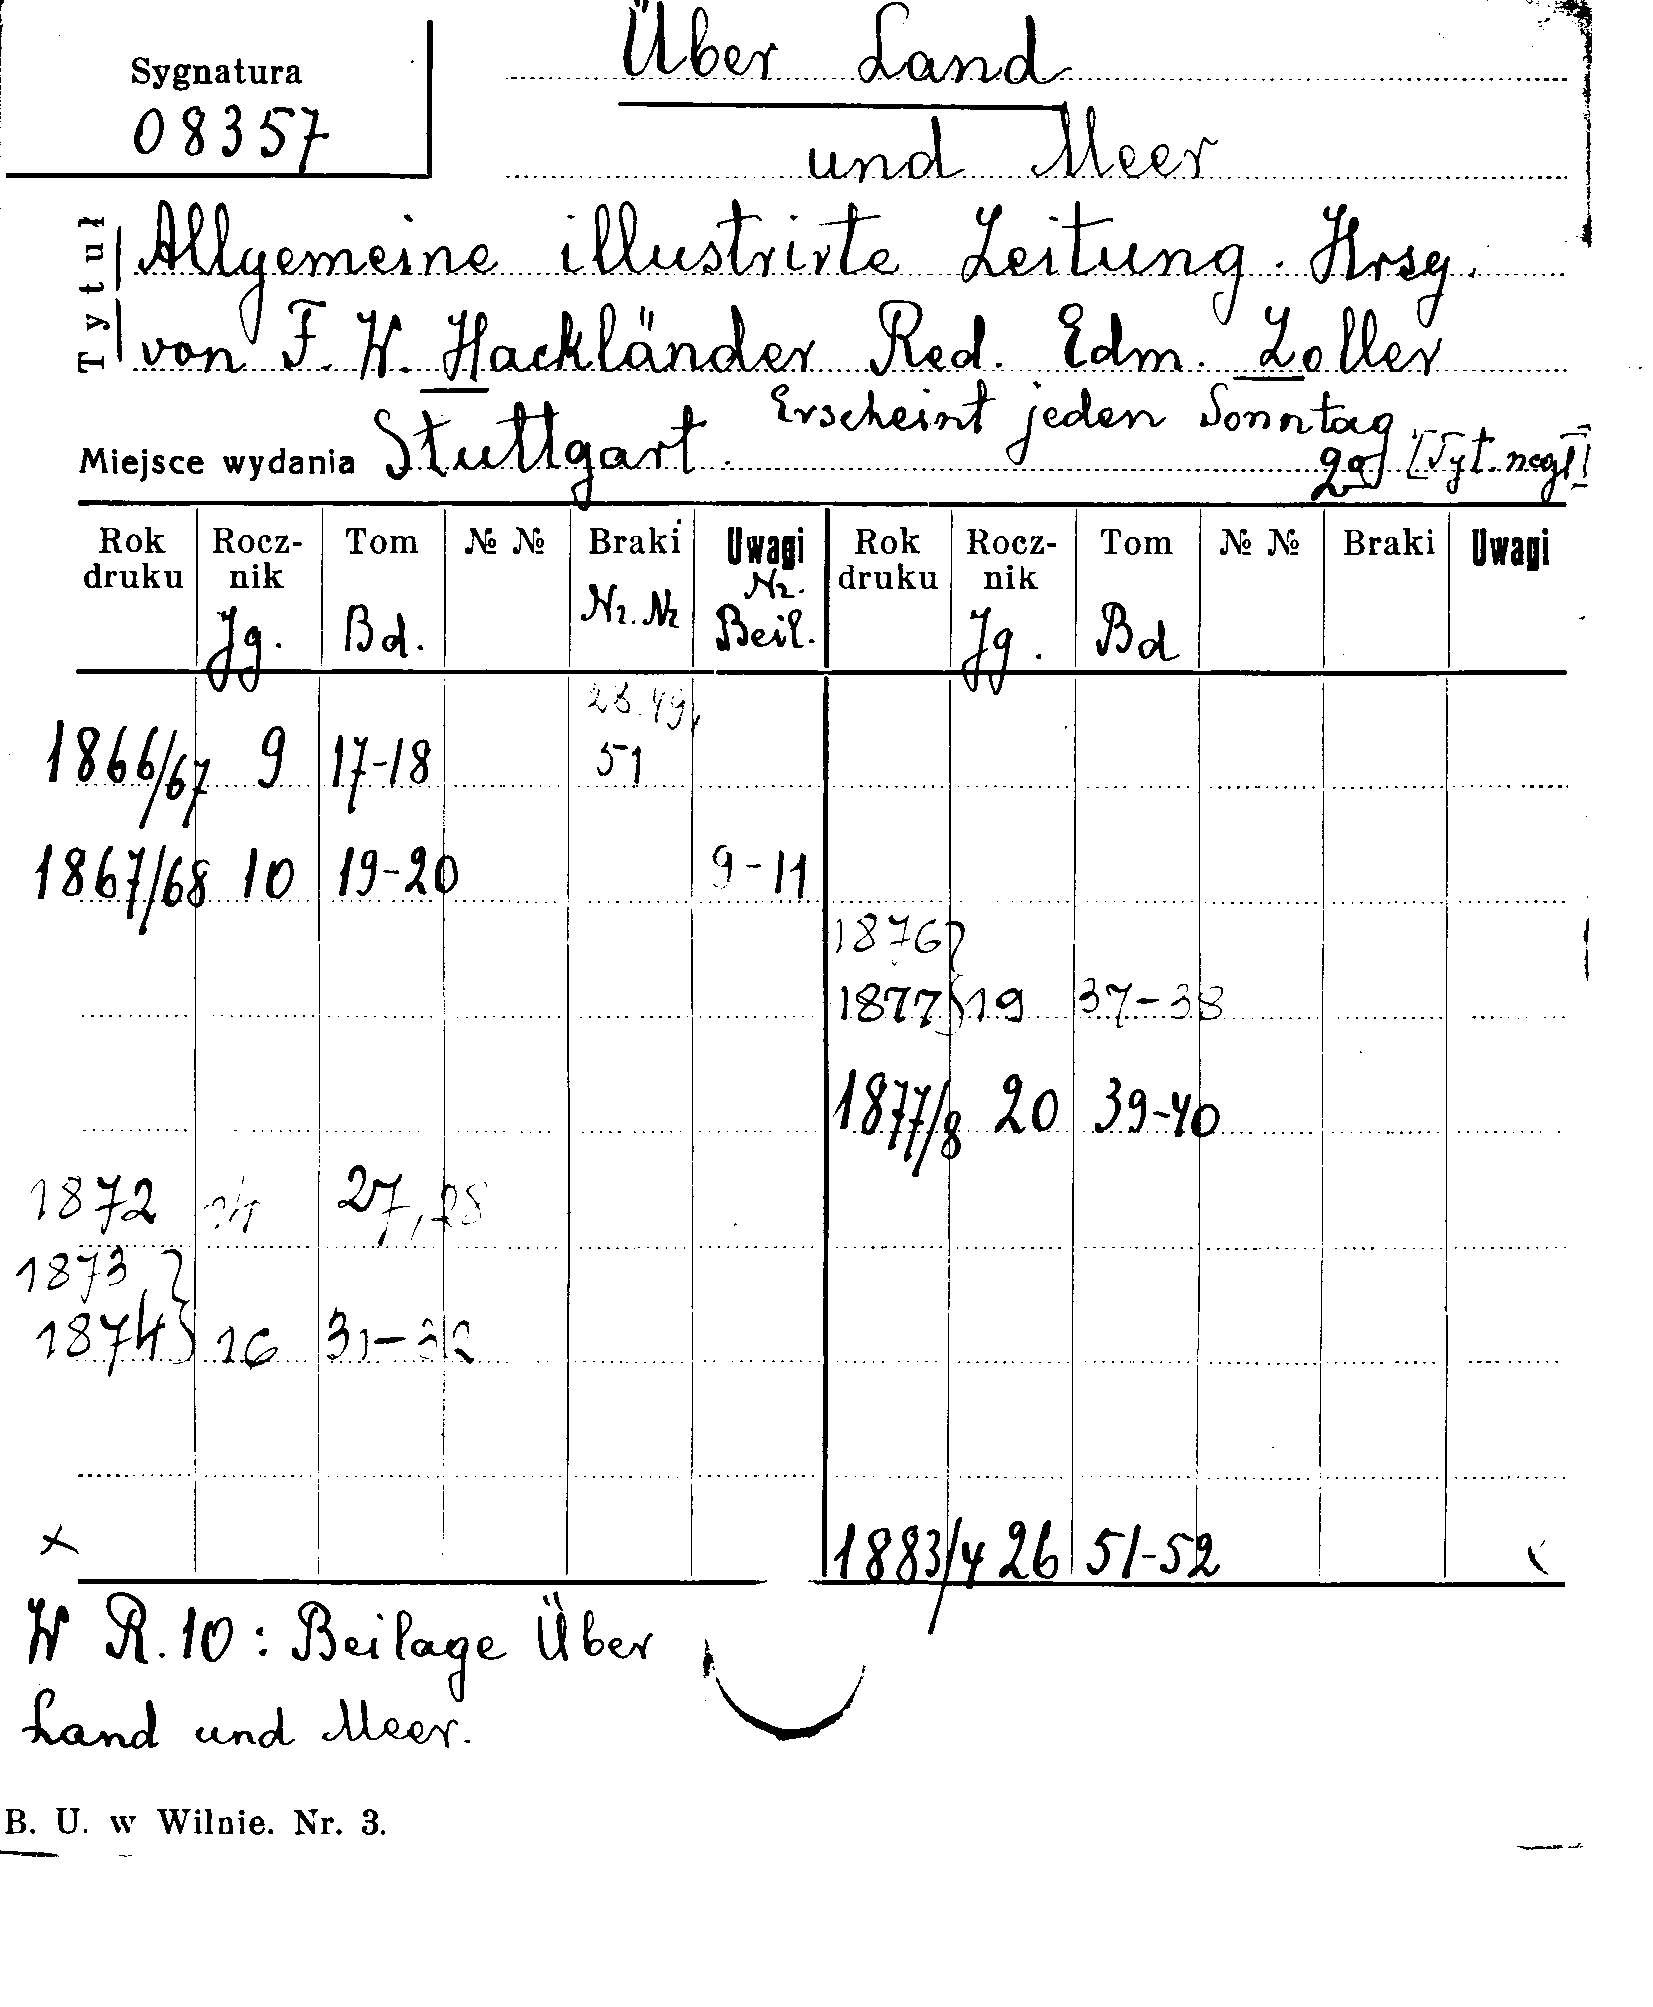 Über Land
Sygnatura
08357
und Meer
Tytuł
Allgemeine illustrirte Zeitung. Hrsg.
von F. W. Hackländer Red. Edm. Zoller
Erscheint jeden Sonntag
Miejsce wydania Stuttgart. 2º [Tyt. nagł]
Rok druku Rocz-nik Tom № № Braki Uwagi Rok druku Rocz-nik Tom № № Braki Uwagi
Jg. Bd. Nr. Nr Nr. Beil. Jg. Bd
28.49,
1866/67 9 17-18 51
1867/68 10 19-20 9-11
1876}
1877} 19 37-38
1877/8 20 39-40
1872 14 27, 28
1873 }
1874 } 16 31-32
x 1883/4 26 51-52
W R. 10: Beilage Über
Land und Meer.
B. U. w Wilnie. Nr. 3.